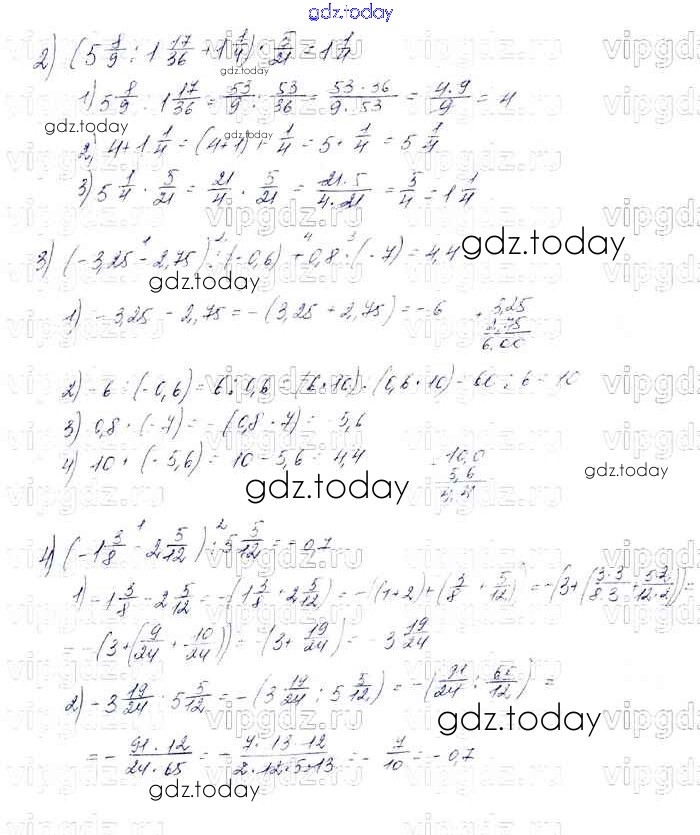 gdz.today
2) (5 8/9 : 1 17/36 + 1 1/4) · 5/21 = 1 1/4
gdz.today
1) 5 8/9 : 1 17/36 = 53/9 : 53/36 = 53 · 36/9 · 53 = 4 · 9/9 = 4
gdz.today
2) 4 + 1 1/4 = (4+1) + 1/4 = 5 + 1/4 = 5 1/4
gdz.today
3) 5 1/4 · 5/21 = 21/4 · 5/21 = 21 · 5/4 · 21 = 5/4 = 1 1/4
vipgdz.ru
3) (-3,25 - 2,75) : (-0,6) + 0,8 · (-7) = 4,4
gdz.today
gdz.today
1) -3,25 - 2,75 = -(3,25 + 2,75) = -6
+ 3,25
2,75
6,00
2) -6 : (-0,6) = 6 : 0,6 = (6 · 10) : (0,6 · 10) = 60 : 6 = 10
3) 0,8 · (-7) = -(0,8 · 7) = -5,6
4) 10 + (-5,6) = 10 - 5,6 = 4,4
- 10,0
5,6
4,4
gdz.today
gdz.today
4) (-1 3/8 - 2 5/12) : 5 5/12 = -0,7
1) -1 3/8 - 2 5/12 = -(1 3/8 + 2 5/12) = -((1+2) + (3/8 + 5/12)) = -(3 + (3·3/8·3 + 5·2/12·2)) =
= -(3 + (9/24 + 10/24)) = -(3 + 19/24) = -3 19/24
2) -3 19/24 : 5 5/12 = -(3 19/24 : 5 5/12) = -(91/24 : 65/12) =
gdz.today
= - 91 · 12/24 · 65 = - 7 · 13 · 12/2 · 12 · 5 · 13 = - 7/10 = -0,7
gdz.today
vipgdz.ru